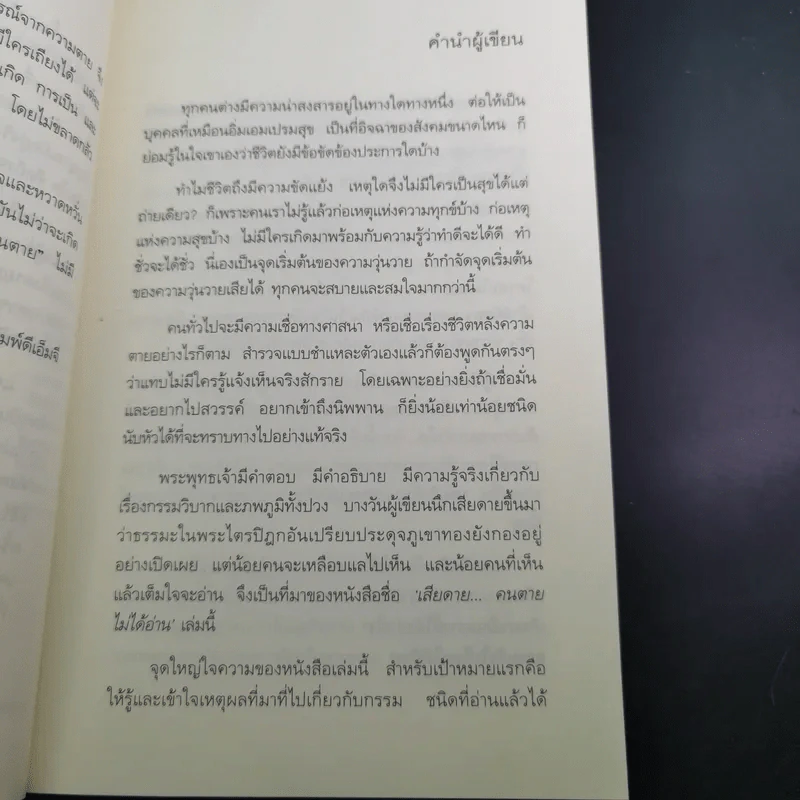 รณ์จากความตาย จึง
มีใครเถียงได้ แต่
กิด การเป็น และ
โดยไม่ขลาดกลัว
จและหวาดหวั่น
บันไม่ว่าจะเกิด
นตาย" ไม่มี
มพ์ดีเอ็มจี
คำนำผู้เขียน
ทุกคนต่างมีความน่าสงสารอยู่ในทางใดทางหนึ่ง ต่อให้เป็น
บุคคลที่เหมือนอิ่มเอมเปรมสุข เป็นที่อิจฉาของสังคมขนาดไหน ก็
ย่อมรู้ในใจเขาเองว่าชีวิตยังมีข้อขัดข้องประการใดบ้าง
ทำไมชีวิตถึงมีความขัดแย้ง เหตุใดจึงไม่มีใครเป็นสุขได้แต่
ถ่ายเดียว? ก็เพราะคนเราไม่รู้แล้วก่อเหตุแห่งความทุกข์บ้าง ก่อเหตุ
แห่งความสุขบ้าง ไม่มีใครเกิดมาพร้อมกับความรู้ว่าทำดีจะได้ดี ทำ
ชั่วจะได้ชั่ว นี่เองเป็นจุดเริ่มต้นของความวุ่นวาย ถ้ากำจัดจุดเริ่มต้น
ของความวุ่นวายเสียได้ ทุกคนจะสบายและสมใจมากกว่านี้
คนทั่วไปจะมีความเชื่อทางศาสนา หรือเชื่อเรื่องชีวิตหลังความ
ตายอย่างไรก็ตาม สำรวจแบบชำแหละตัวเองแล้วก็ต้องพูดกันตรงๆ
ว่าแทบไม่มีใครรู้แจ้งเห็นจริงสักราย โดยเฉพาะอย่างยิ่งถ้าเชื่อมั่น
และอยากไปสวรรค์ อยากเข้าถึงนิพพาน ก็ยิ่งน้อยเท่าน้อยชนิด
นับหัวได้ที่จะทราบทางไปอย่างแท้จริง
พระพุทธเจ้ามีคำตอบ มีคำอธิบาย มีความรู้จริงเกี่ยวกับ
เรื่องกรรมวิบากและภพภูมิทั้งปวง บางวันผู้เขียนนึกเสียดายขึ้นมา
ว่าธรรมะในพระไตรปิฎกอันเปรียบประดุจภูเขาทองยังกองอยู่
อย่างเปิดเผย แต่น้อยคนจะเหลือบแลไปเห็น และน้อยคนที่เห็น
แล้วเต็มใจจะอ่าน จึงเป็นที่มาของหนังสือชื่อ 'เสียดาย... คนตาย
ไม่ได้อ่าน' เล่มนี้
จุดใหญ่ใจความของหนังสือเล่มนี้ สำหรับเป้าหมายแรกคือ
ให้รู้และเข้าใจเหตุผลที่มาที่ไปเกี่ยวกับกรรม ชนิดที่อ่านแล้วได้